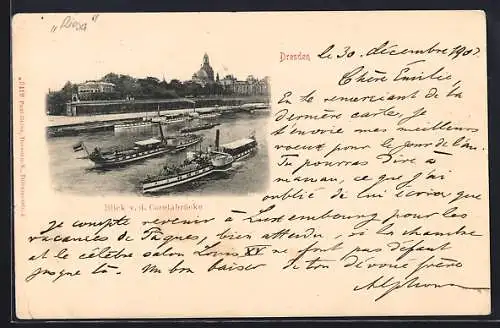 „Riesa“
Dresden
le 30. décembre 1903
Chère Emilie
En te remerciant de la
dernière carte, je
t'envoie mes meilleurs
voeux pour le jour de l'an.
Tu pourras dire à
maman, ce que j'ai
oublié de lui écrire que
je compte revenir à Luxembourg pour les
vacances de Pâques, bien attendu, si la chambre
et le célèbre salon Louis XV ne font pas défaut
jusque là. Un bon baiser de ton dévoué frère
Alphonse
Blick v. d. Carolabrücke